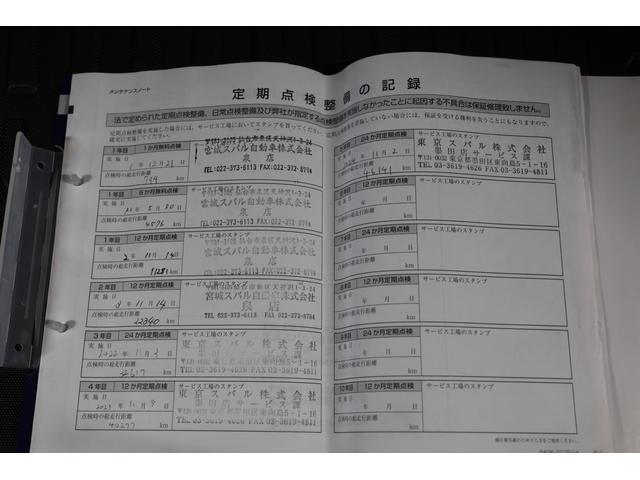 メンテナンスノート
定期点検整備の記録
法で定められた定期点検整備、日常点検及び弊社が指定する点検整備を実施しなかったことに起因する不具合は保証修理致しません。
定期点検整備を実施した場合には、サービス工場においてスタンプを買ってください。
確実に実施してください。
1年目 1か月無料点検
実施日 1年12月21日
点検時の総走行距離
km
宮城スバル自動車株式会社
泉店
TEL:022-373-6113 FAX:022-372-8794
1年目 6か月無料点検
サービス工場のスタンプ
実施日 年5月30日
点検時の総走行距離
4576 km
宮城スバル自動車株式会社
泉店
TEL:022-373-6113 FAX:022-372-8794
1年目 12か月定期点検
サービス工場のスタンプ
実施日 2年11月14日
点検時の総走行距離
11281 km
宮城スバル自動車株式会社
泉店
TEL:022-373-6113 FAX:022-372-8794
2年目 12か月定期点検
サービス工場のスタンプ
実施日 3年11月14日
点検時の総走行距離
22840 km
宮城スバル自動車株式会社
泉店
TEL 022-373-6113 FAX 022-372-8794
3年目 24か月定期点検
サービス工場のスタンプ
実施日 2022年11月3日
点検時の総走行距離
km
東京スバル株式会社
墨田店サービス課
〒131-0032 東京都墨田区東向島5-1-16
TEL 03-3619-4626 FAX 03-3619-4811
4年目 12か月定期点検
サービス工場のスタンプ
実施日 2023年11月9日
点検時の総走行距離
40277 km
東京スバル株式会社
墨田店サービス課
〒131-0032 東京都墨田区東向島5-1-16
TEL 03-3619-4626 FAX 03-3619-4811
24か月定期点検
年11月2日
46141 km
東京スバル株式会社
墨田店サービス課
〒131-0032 東京都墨田区東向島5-1-16
TEL 03-3619-4626 FAX 03-3619-4811
12か月定期点検
サービス工場のスタンプ
年 月 日
点検時の総走行距離
km
24か月定期点検
サービス工場のスタンプ
年 月 日
点検時の総走行距離
km
12か月定期点検
サービス工場のスタンプ
年 月 日
点検時の総走行距離
km
24か月定期点検
サービス工場のスタンプ
年 月 日
点検時の総走行距離
km
10年目 12か月定期点検
サービス工場のスタンプ
実施日 年 月 日
点検時の総走行距離
km